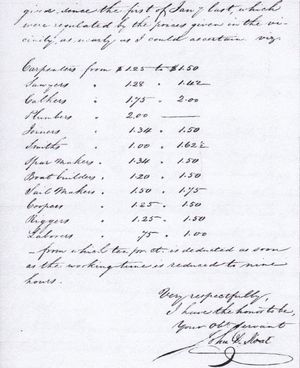 given since the first of Jany last, which
were regulated by the prices given in the vi-
cinity, as nearly as I could ascertain viz.
Carpenters from $1.25 to $1.50
Sawyers " 1.28 " 1.42
Calkers " 1.75 " 2.00
Plumbers " 2.00 ——
Joiners " 1.34 " 1.50
Smiths " 1.00 " 1.62½
Spar Makers " 1.34 " 1.50
Boat builders " 1.20 " 1.50
Sail Makers " 1.50 " 1.75
Coopers " 1.25 " 1.50
Riggers " 1.25 " 1.50
Laborers " 75 " 1.00
— from which ten pr. ct. is deducted as soon
as the working time is reduced to nine
hours.
Very respectfully,
I have the honor to be,
Your Obt. Servant
John D.